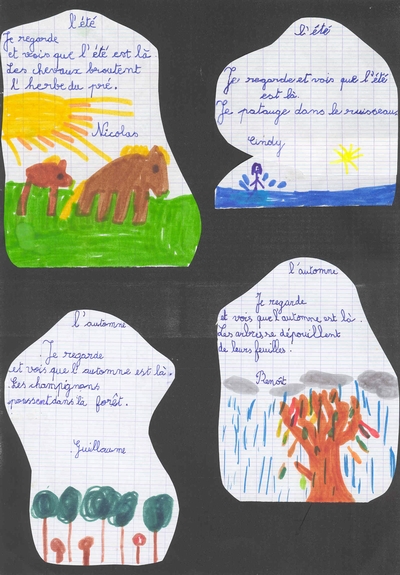 l'été
Je regarde
et vois que l'été est là.
Les chevaux broutent
l'herbe du pré.
Nicolas
l'été
Je regarde et vois que l'été
est là.
Je patauge dans le ruisseau
Cindy
l'automne
Je regarde
et vois que l'automne est là.
Les champignons
poussent dans la forêt.
Guillaume
l'automne
Je regarde
et vois que l'automne est là.
Les arbres se dépouillent
de leurs feuilles.
Benoît